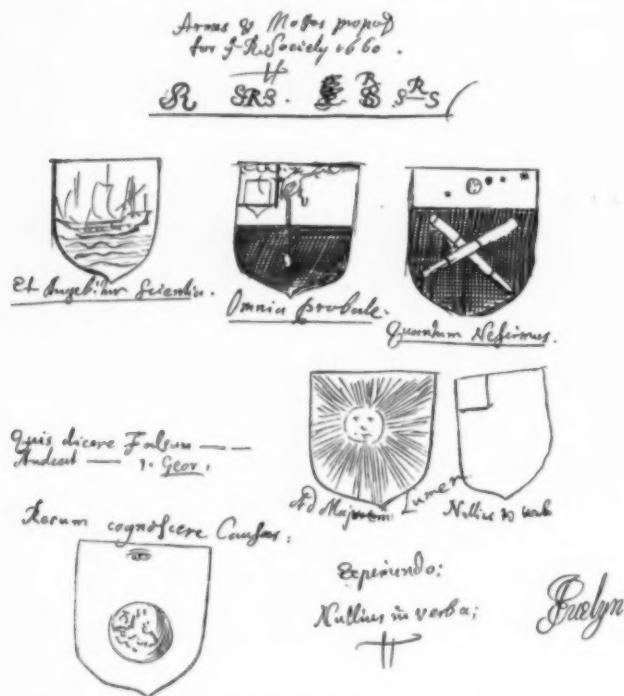 Armes & Mottos propos'd
for ye R. Society 1660.
SRS.
Et Augebitur Scientia.
Omnia probate.
Quantum Nescimus.
Quis dicere Falsum
Audeat
Geor.
Ad Majorem Lumen
Nullius in verba
Rerum cognoscere Causas:
Experiendo:
Nullius in verba;
JEvelyn